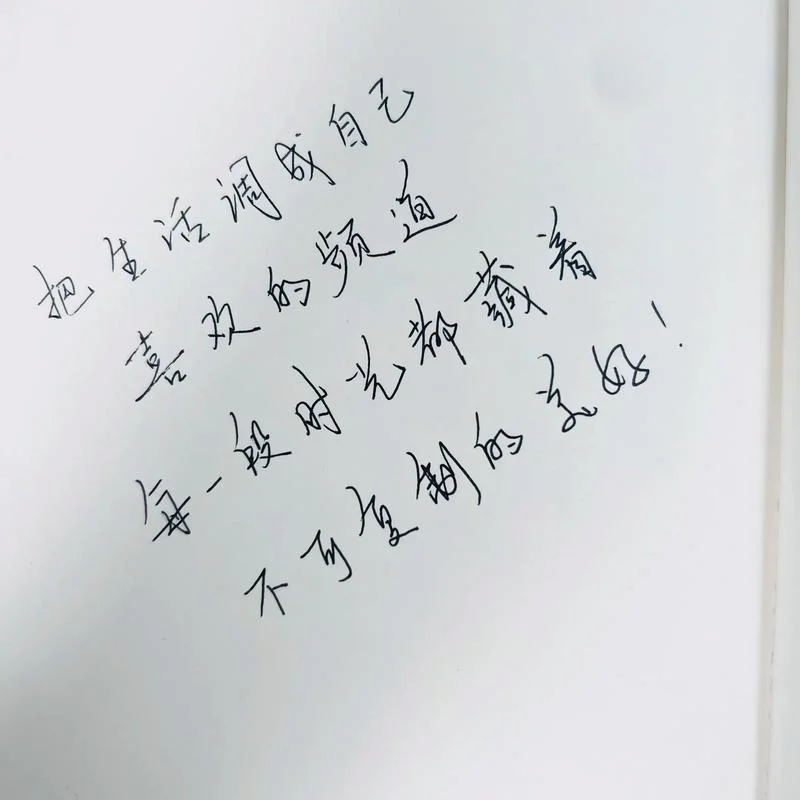 把生活调成自己
喜欢的频道
每一段时光都藏着
不可复制的美好！